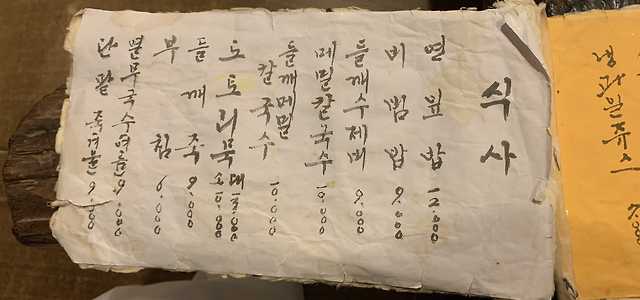 식사
연잎밥 12.000
비빔밥 9.000
들깨수제비 9.000
메밀칼국수 10.000
들깨메밀
칼국수 10.000
도토리묵 대
소 10.000
들깨죽 9.000
부침 6.000
열무국수 여름 9.000
단팥죽 겨울 9.000
쥬스